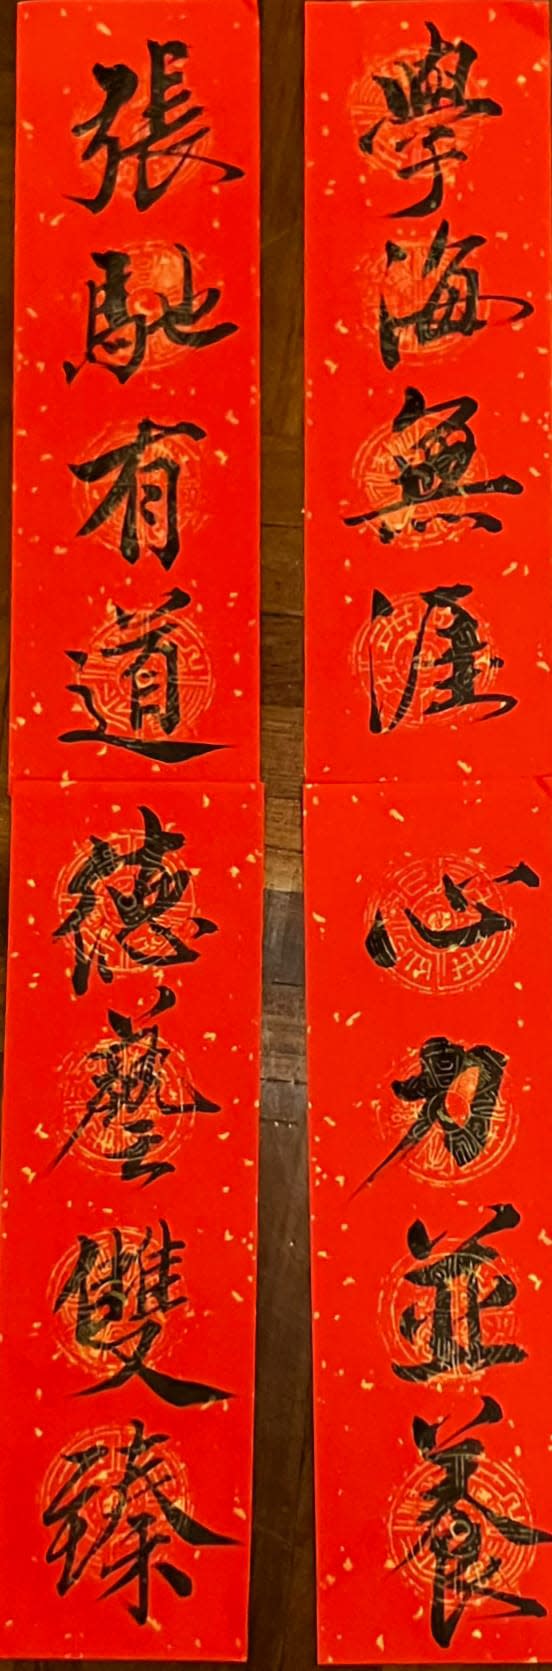 學海無涯
心力並養
張馳有道
德藝雙臻